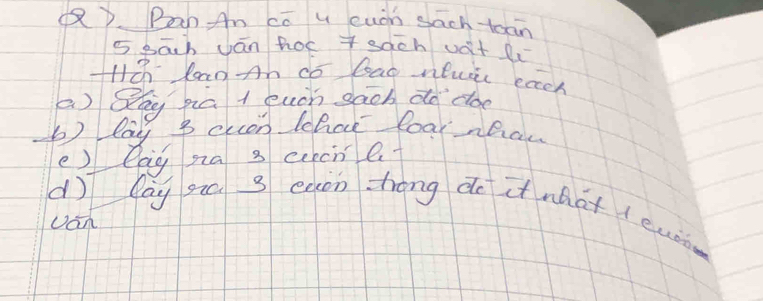 2). Bạn An có 4 cuốn sách toán
5 sách văn học 7 sách vật lí
Hỏi bạn An có bao nhiêu cách
a) Lấy ra 1 cuốn sách để đọc
b) lấy 3 cuốn khác loại nhau
c) Lấy ra 3 cuốn lí
d) Lấy ra 3 cuốn trong đó ít nhất 1 cuốn
văn